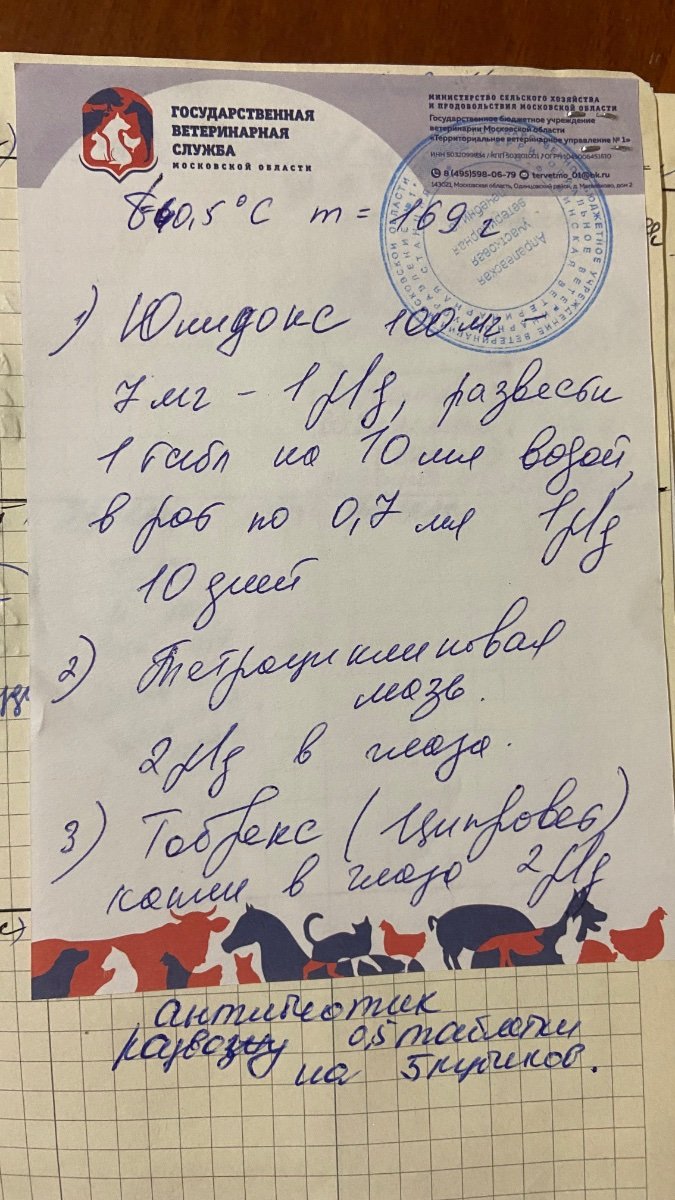 ГОСУДАРСТВЕННАЯ
ВЕТЕРИНАРНАЯ
СЛУЖБА
МОСКОВСКОЙ ОБЛАСТИ
МИНИСТЕРСТВО СЕЛЬСКОГО ХОЗЯЙСТВА
И ПРОДОВОЛЬСТВИЯ МОСКОВСКОЙ ОБЛАСТИ
Государственное бюджетное учреждение
ветеринарии Московской области
«Территориальное ветеринарное управление № 1»
8 (495)598-06-79 tervetmo_01@bk.ru
143021, Московская область, Одинцовский район, д. Малявково, дом 2
Апрелевская
участковая
ветеринарная
0,5°C m = 169 г
1) Юнидокс 100 мг -
7 мг - 1 р/д, развести
1 табл на 10 мл водой,
в рот по 0,7 мл 1 р/д
10 дней
2) Тетрациклиновая
мазь.
2 р/д в глаза.
3) Тобрекс (Ципровет)
капли в глаза 2 р/д
антибиотик
развожу 0,5 таблетки
на 5 кубиков.